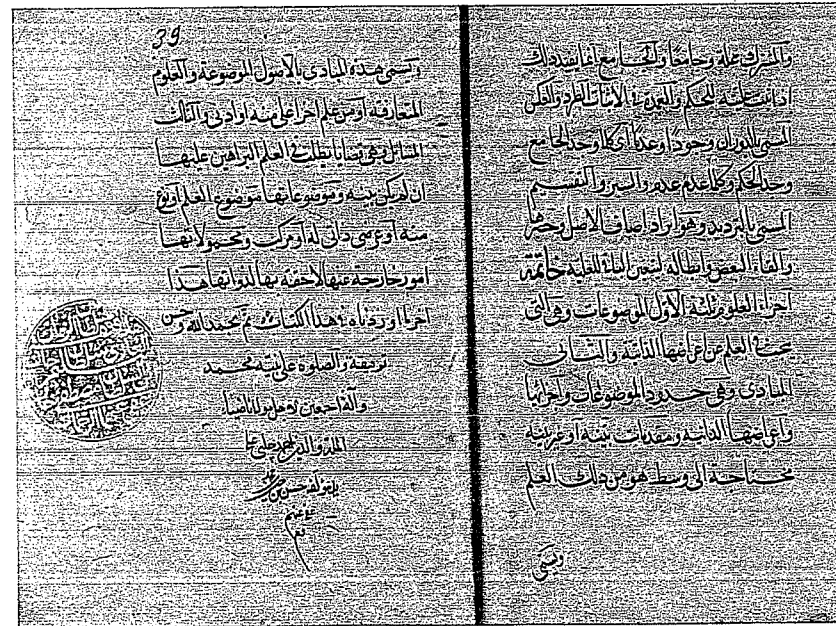 والمشترك علة وجامعا والجامع انما يفيد ذلك
اذا ثبت عليته للحكم والعمدة فى الاثبات الطرد والعكس
المسمى بالدوران وجودا وعدما اى كلما وجد الجامع
وجد الحكم وكلما عدم عدم والسبر والتقسيم
المسمى بالترديد وهو ايراد اوصاف الاصل وحصرها
والغاء البعض وابطاله ليتعين الباقى للعلية خاتمة
اجزاء العلوم ثلثة الاول الموضوعات وهى التى
يبحث فى العلم عن اعراضها الذاتية والثانى
المبادى وهى حدود الموضوعات واجزائها
واعراضها الذاتية ومقدمات بينة او غير بينة
محتاجة الى وسط هو من ذلك العلم
ويسمى
39
وتسمى هذه المبادى بالاصول الموضوعة والعلوم
المتعارفة او من علم اخر اعلى منه او ادنى والثالث
المسائل وهى قضايا يطلب فى العلم البراهين عليها
ان لم يكن بينة وموضوعاتها موضوع العلم او نوع
منه او عرض ذاتى له او مركب ومحمولاتها
امور خارجة عنها لاحقة بها لذواتها هذا
اخر ما اوردناه فى هذا الكتاب تم بحمد الله وحسن
توفيقه والصلوة على نبيه محمد
وآله اجمعين لاجل مولانا ضياء
الملة والدين محمد
حسن بن